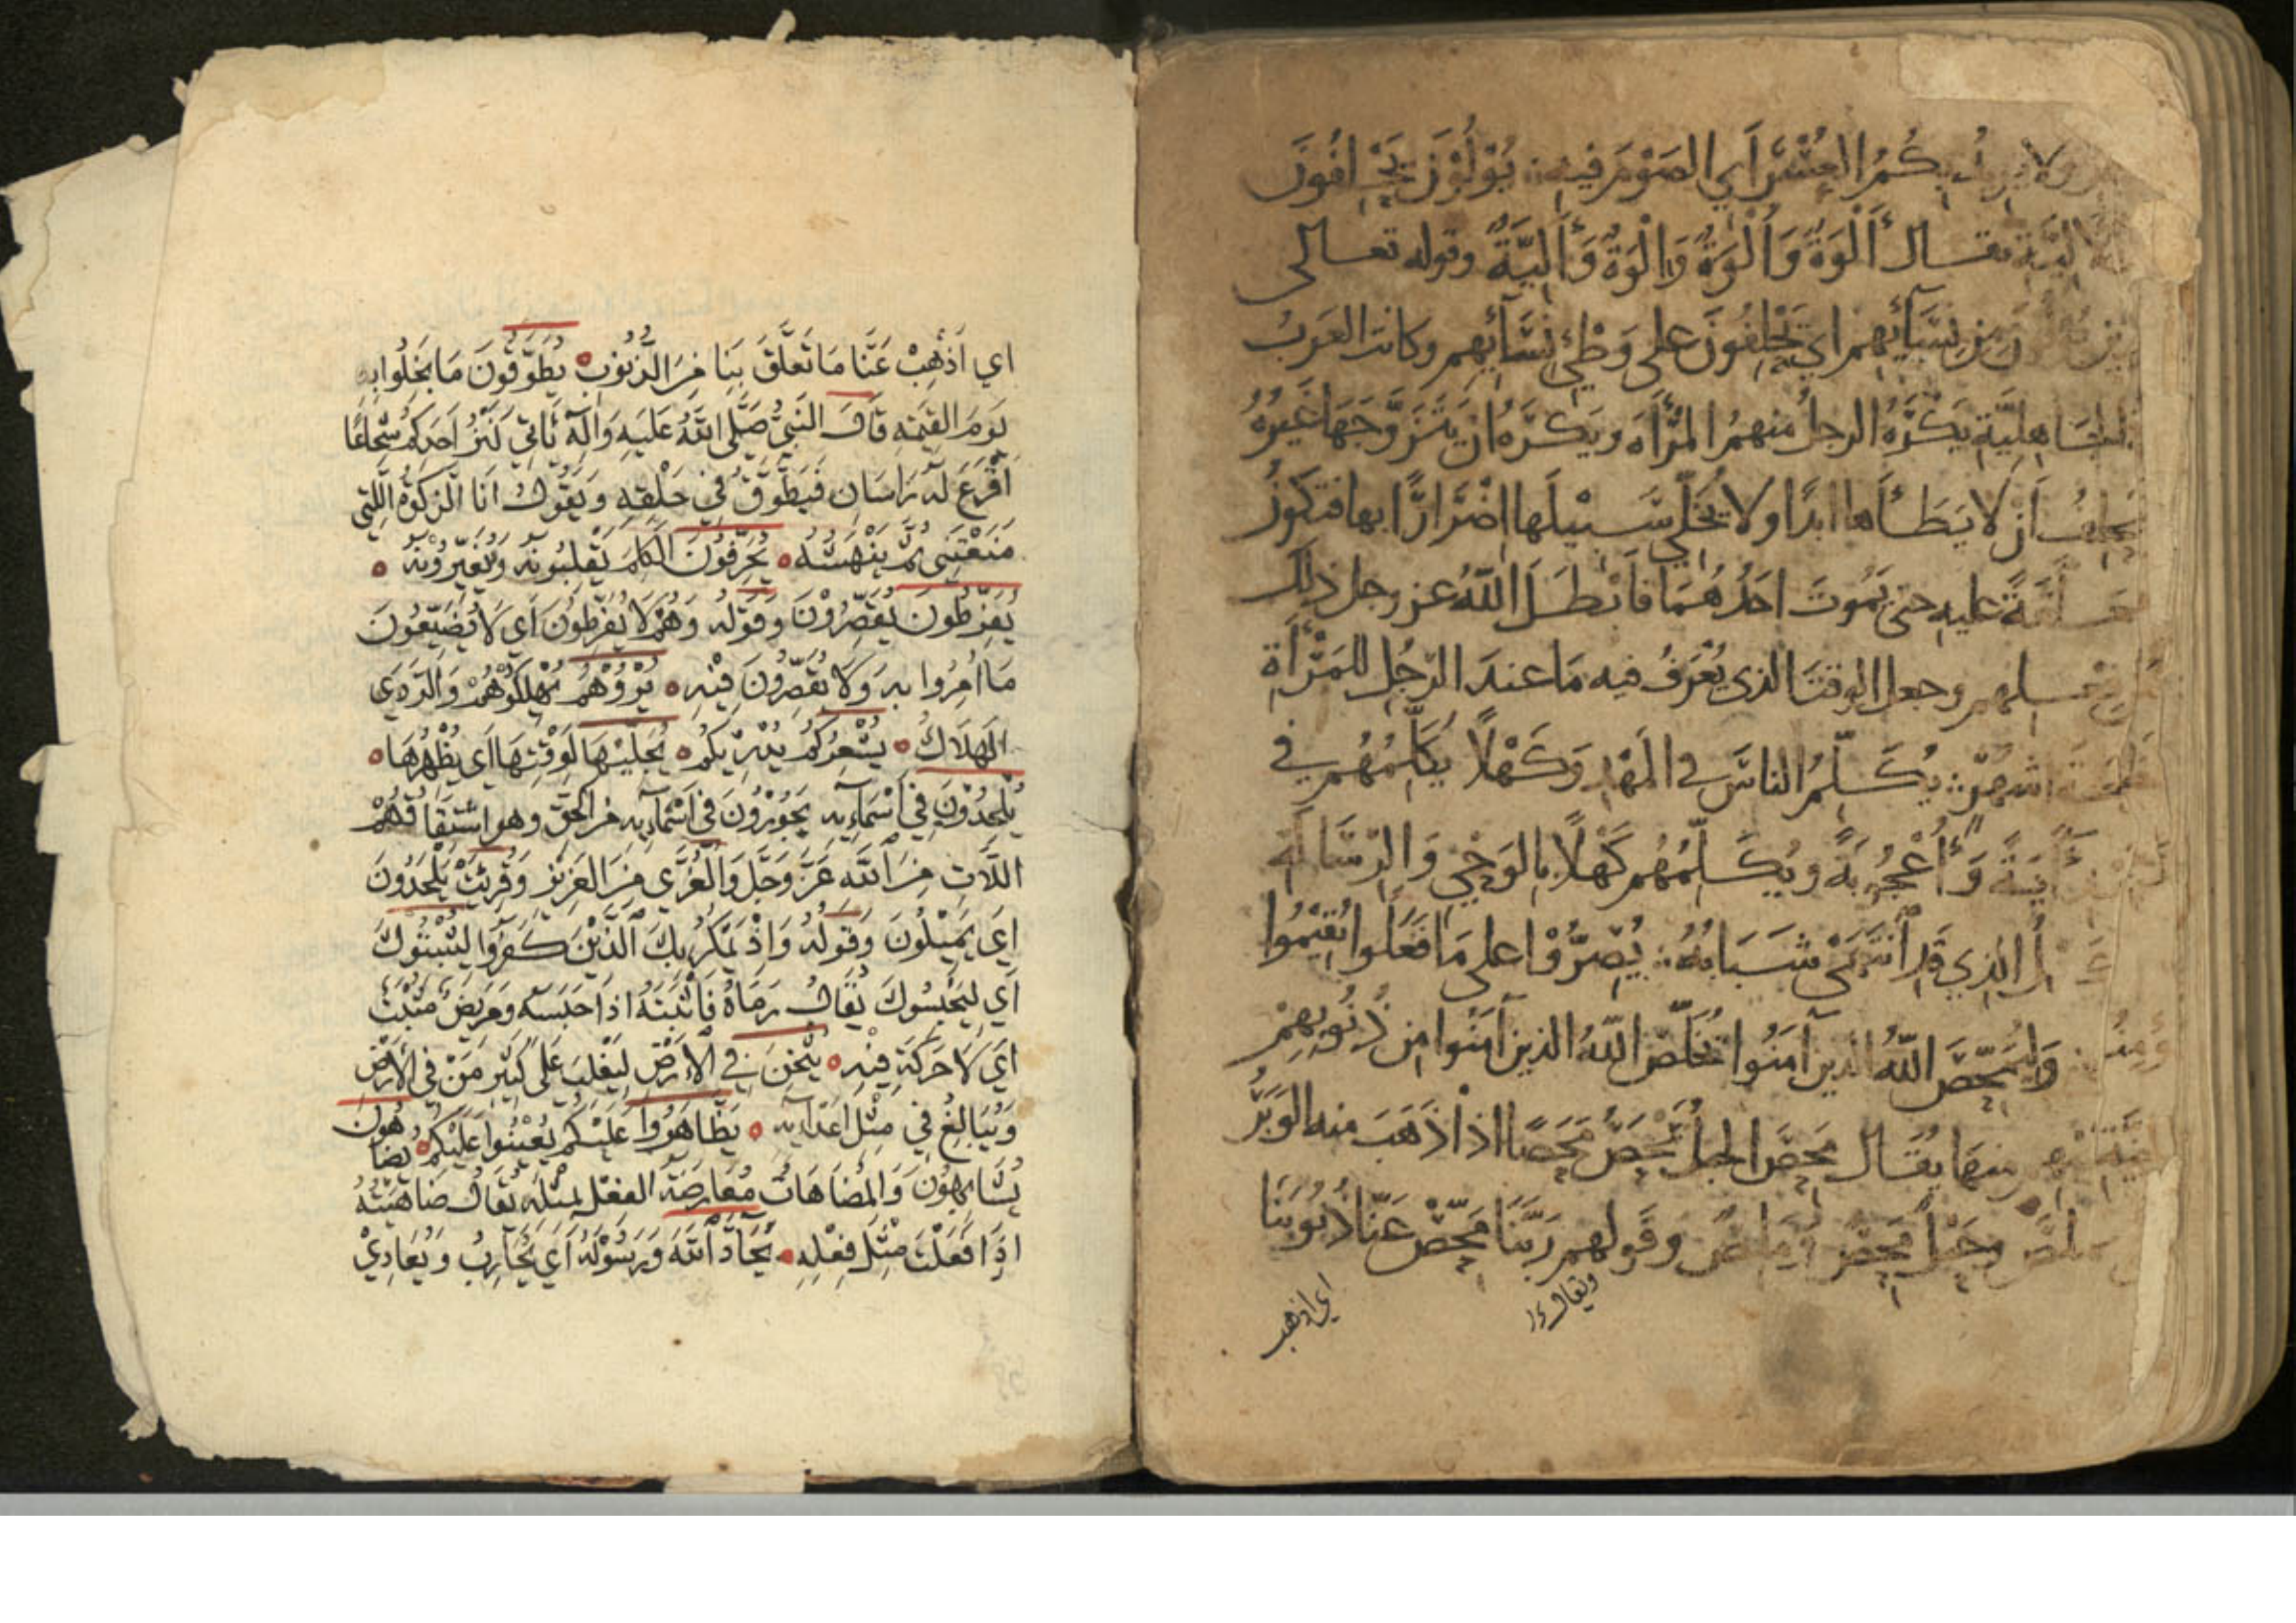 ولا يريد بكم العسر أي الصوم فيه يؤلون يحلفون
الية يقال أَلْوَة وَأُلْوَة وَإِلْوَة وَأَلِيَّة وقوله تعالى
من نسآئهم اي يحلفون على وطئ نسآئهم وكانت العرب
الجاهلية يكره الرجل منهم المرأة ويكره ان يتزوجها غيره
يحلف أن لا يطأها ابدا ولا يخلي سبيلها اضرارًا بها فتكون
معلقة عليه حتى يموت احدهما فأبطل الله عز وجل ذلك
وجعل الوقت الذي يعرف فيه ما عند الرجل للمرأة
اشهر يكلم الناس في المهد وكهلًا يكلمهم في
آية وأعجوبة ويكلمهم كهلًا بالوحي والرسالة
الذي قد انتهى شبابه يصروا على ما فعلوا يقيموا
وليمحص الله الذين آمنوا يخلص الله الذين آمنوا من ذنوبهم
منها يقال محص الحبل يمحص محصًا اذا ذهب منه الوبر
وحبل محص وقولهم ربنا محص عنا ذنوبنا
ويقال
اي اذهب
اي أذهب عنا ما تعلق بنا من الذنوب يطوقون ما بخلوا به
يوم القيمة قال النبي صلى الله عليه وآله يأتي كنز احدكم شجاعًا
اقرع له راسان فيطوق في حلقه ويقول انا الزكوة اللتي
منعتني ثم ينهسه يحرفون الكلم يقلبونه ويغيرونه
يفرطون يقصرون وقوله وهم لا يفرطون أي لا يضيعون
ما امروا به ولا يقصرون فيه يردوهم يهلكوهم والردى
الهلاك يشعركم يدريكم يجليها لوقتها اي يظهرها
يلحدون في أسمآئه يجورون في اسمآئه عن الحق وهو اشتقاقهم
اللات من الله عز وجل والعزى من العزيز وقرئت يلحدون
اي يميلون وقوله واذ يمكر بك الذين كفروا ليثبتوك
أي ليحبسوك يقال رماه فأثبته اذا حبسه ومريض مثبت
اي لا حركة فيه يثخن في الأرض ليغلب على كثير من في الأرض
ويبالغ في مثل اعدآئه يظاهروا عليكم يعينوا عليكم يضاهون
يشابهون والمضاهات معارضة الفعل بمثله يقال ضاهيته
اذا فعلت مثل فعله يحآد الله ورسوله أي يحارب ويعادي